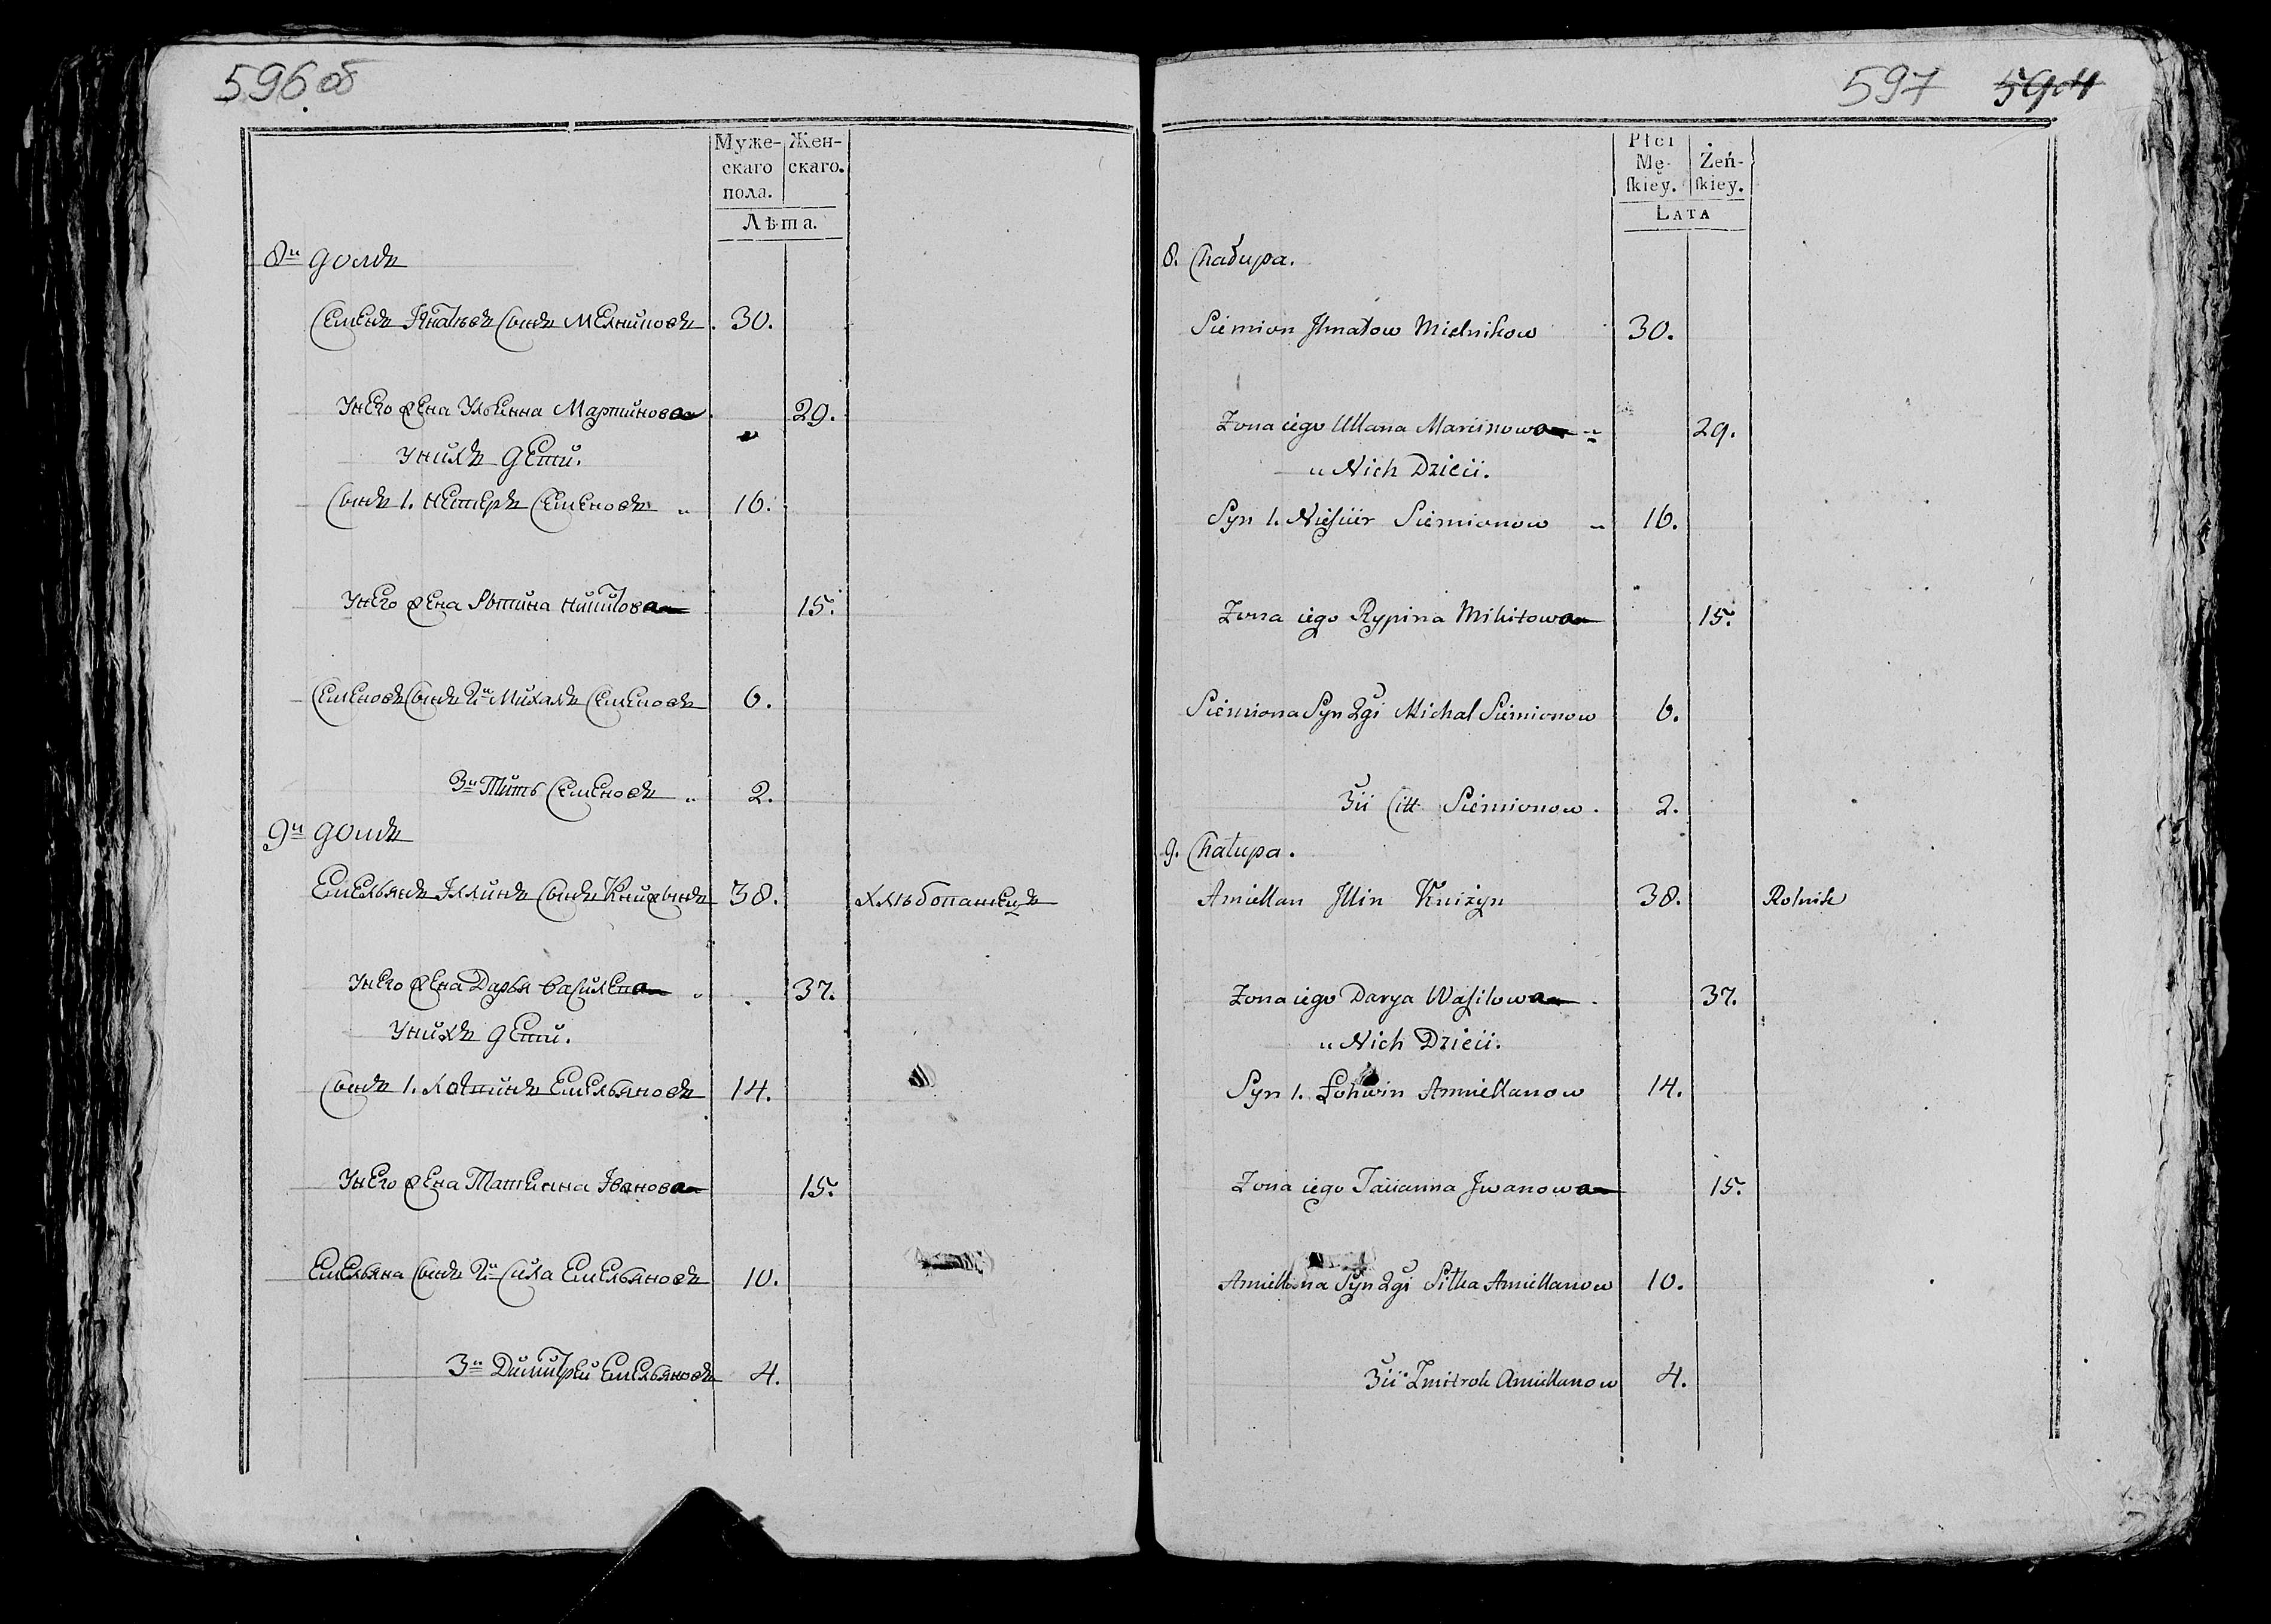 596 об
Муже-
скаго
пола.
Жен-
скаго.
Лѣта.
8й домъ
Семенъ Игнатьевъ Сынъ Мелниковъ. 30.
Унего жена Ульянна Мартинова 29.
Унихъ дети.
Сынъ 1. Нестеръ Семеновъ 16.
Унего жена Никитова 15.
Семеновъ Сынъ 2й Михалъ Семеновъ 6.
3й Титъ Семеновъ 2.
9й домъ
Емельянъ Иллинъ Сынъ Книжынъ 38. хлѣбопашецъ
Унего жена Дарья Василева 37.
Унихъ дети.
Сынъ 1. Емельяновъ 14.
Унего жена Татьянна Іванова 15.
Емельяна Сынъ 2й Сила Емельяновъ 10.
3й Димитрей Емельяновъ 4.
597 594
Płci
Mę-
ſkiey.
Żeń-
ſkiey.
LATA
8. Chałupa.
Siemion Mielnikow 30.
Zona iego Ullana Marcinowa 29.
u Nich Dzieci.
Syn 1. Siemionow 16.
Zona iego Rypina Mikitowa 15.
Siemiona Syn 2gi Michał Siemionow 6.
3ci Citt Siemionow. 2.
9. Chałupa.
Amiellan Illin Kniżyn 38. Rolnik
Zona iego Darya Wasilowa 37.
u Nich Dzieci.
Syn 1. Łohwin Amiellanow 14.
Zona iego Tacianna Iwanowa 15.
Amiellana Syn 2gi Siłka Amiellanow 10.
3ci Zmitrok Amiellanow 4.